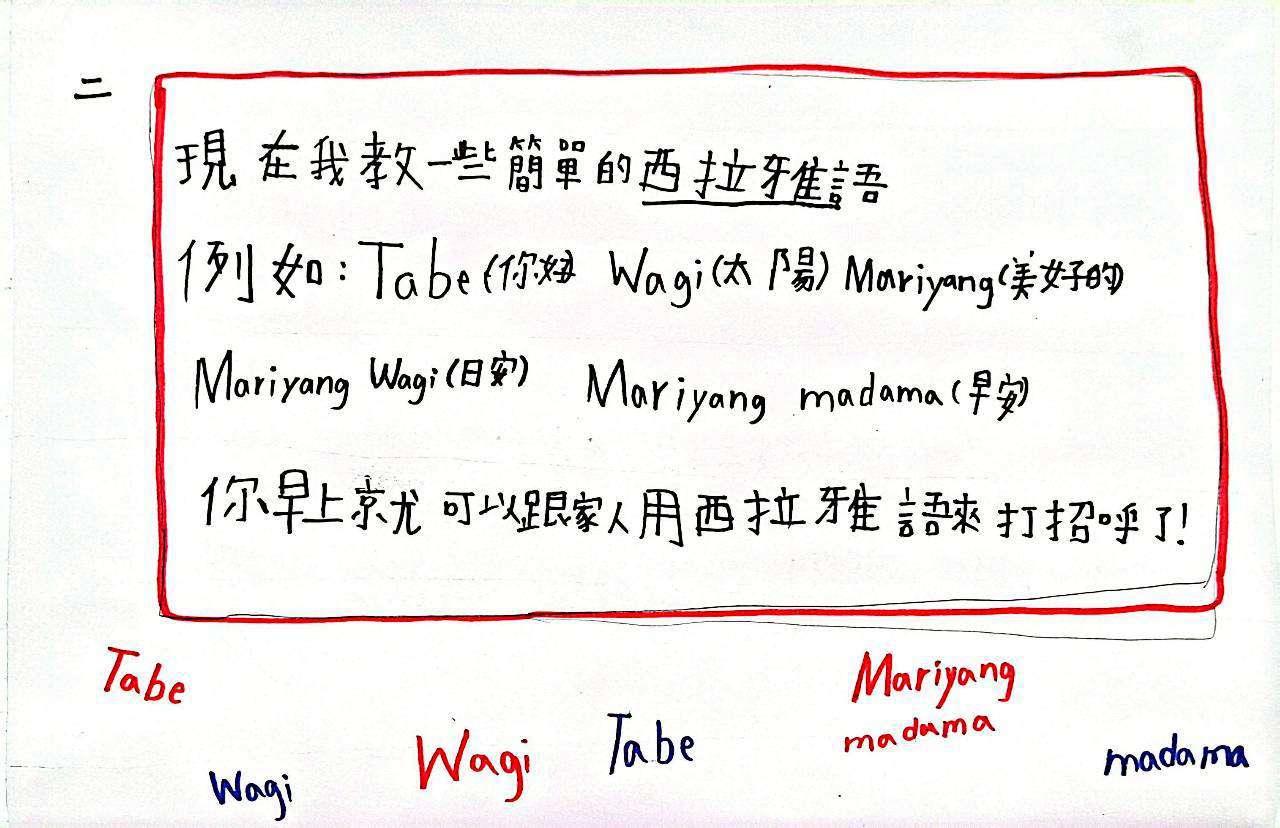 二
現在我教一些簡單的西拉雅語
例如:Tabe(你好) Wagi(太陽) Mariyang(美好的)
Mariyang Wagi(日安) Mariyang madama(早安)
你早上就可以跟家人用西拉雅語來打招呼了!
Tabe
Mariyang
madama
Wagi
Tabe
madama
Wagi